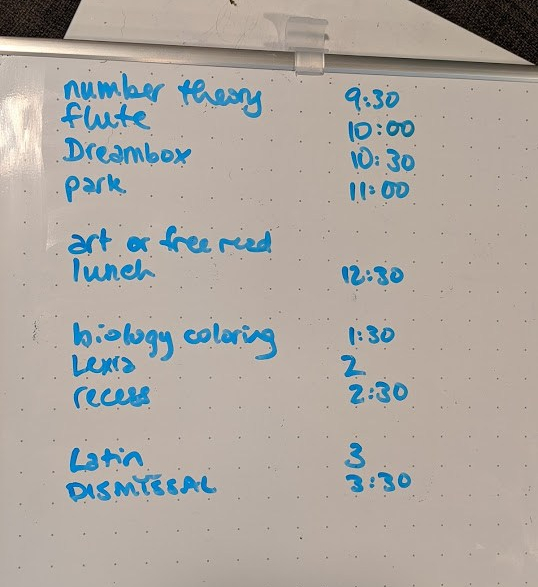 number theory 9:30
flute 10:00
Dreambox 10:30
park 11:00
art or free read
lunch 12:30
biology coloring 1:30
Lexia 2
recess 2:30
Latin 3
DISMISSAL 3:30